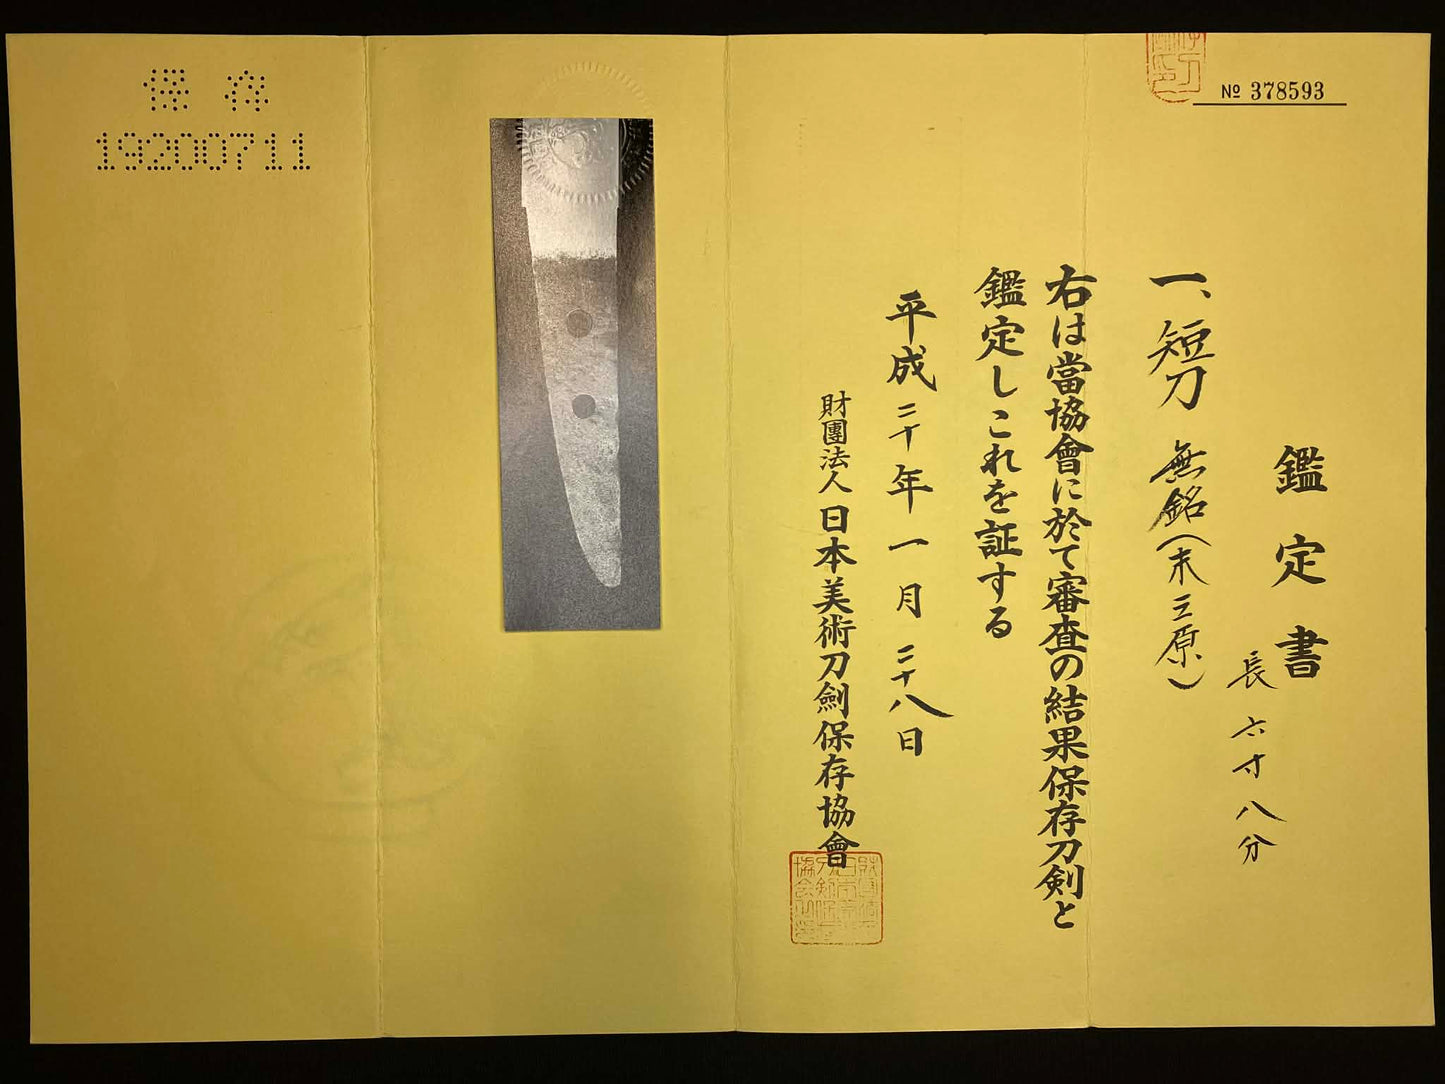 № 378593
鑑定書
長 六寸八分
一、短刀 無銘(末三原)
右は當協會に於て審査の結果保存刀剣と
鑑定しこれを証する
平成二十年一月二十八日
財團法人日本美術刀劍保存協會
保存
19200711